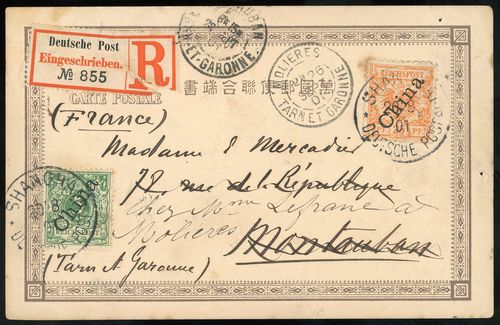 Deutsche Post
Eingeschrieben.
№ 855
R
MONTAUBAN
ET-GARONNE
MOLIERES
26
01
TARN ET GARONNE
REICHSPOST
China
SHANGHAI
01
DEUTSCHE POST
書端合聯便郵國萬
CARTE POSTALE
(France)
Madame E Mercadier
72 rue de la République
chez Mme Lefranc à
Molieres
Montauban
(Tarn et Garonne)
SHANGHAI
China
REICHSPOST